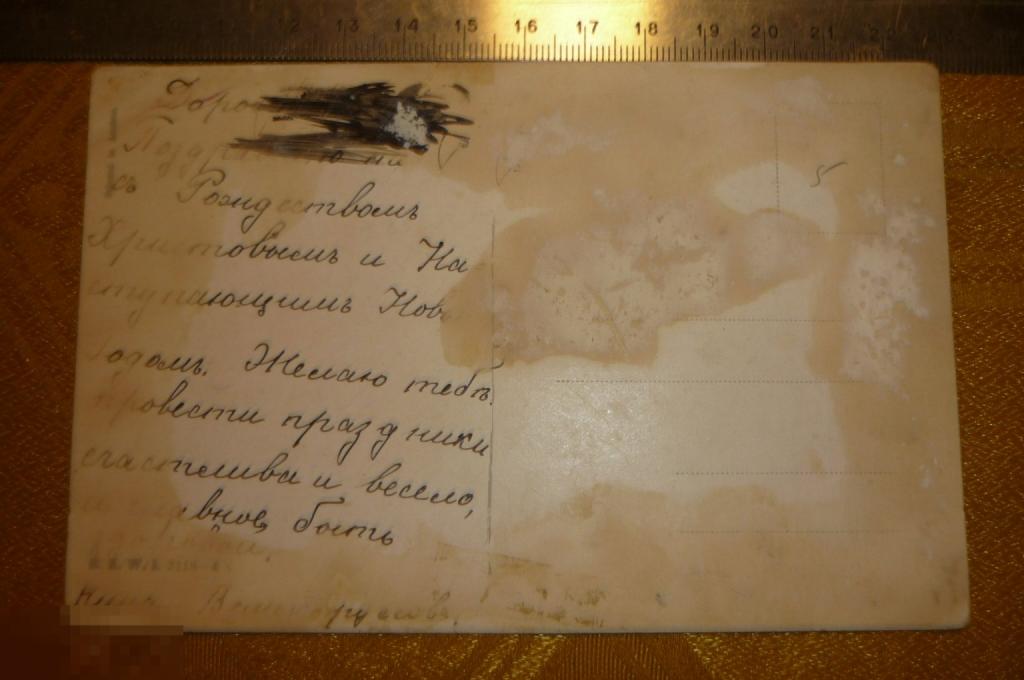 12 13 14 15 16 17 18 19 20 21 22
Доро
Поздравляю
съ Рождествомъ
Христовымъ и На
ступающимъ Нов
Годомъ. Желаю тебѣ
провести праздники
счастливо и весело,
и главное, быть
здоровой.
5